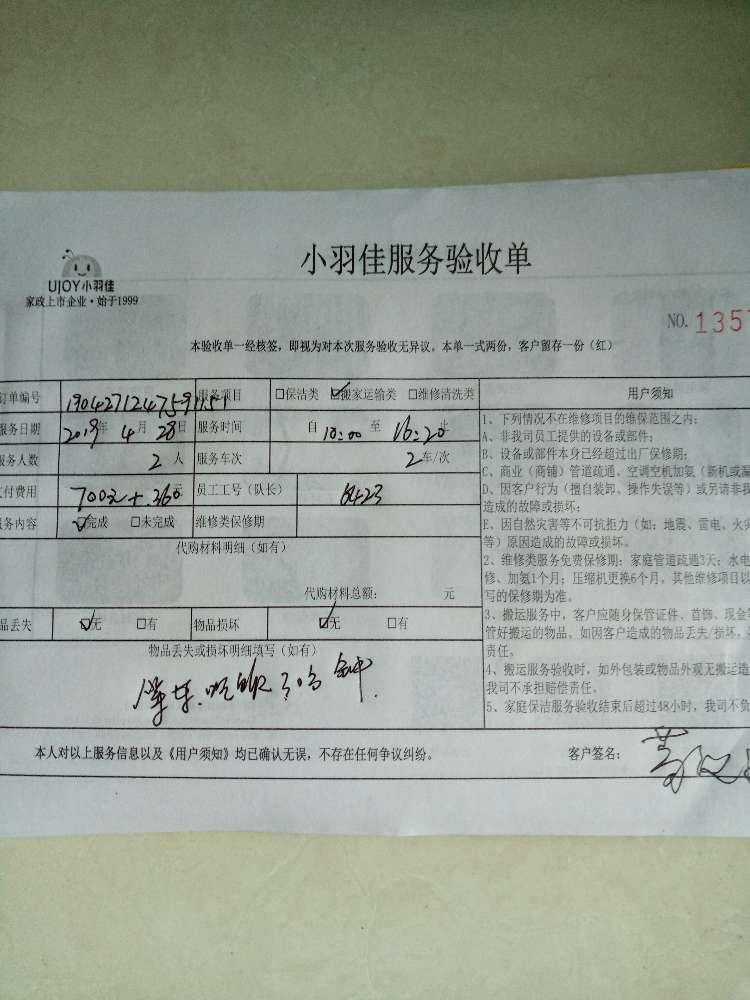 UJOY小羽佳
家政上市企业·始于1999
小羽佳服务验收单
NO. 135
本验收单一经核签，即视为对本次服务验收无异议。本单一式两份，客户留存一份（红）
订单编号 服务项目 □保洁类 ☑搬家运输类 □维修清洗类
服务日期 2019年 4月 28日 服务时间 自 10:00 至 16:20 止
服务人数 2 人 服务车次 2车/次
支付费用 700元+260元 员工工号（队长） 8423
服务内容 ☑完成 □未完成 维修类保修期
代购材料明细（如有）
代购材料总额： 元
品丢失 ☑无 □有 物品损坏 ☑无 □有
物品丢失或损坏明细填写（如有）
本人对以上服务信息以及《用户须知》均已确认无误，不存在任何争议纠纷。 客户签名：
用户须知
1、下列情况不在维修项目的维保范围之内：
A、非我司员工提供的设备或部件；
B、设备或部件本身已经超过出厂保修期；
C、商业（商铺）管道疏通、空调空机加氨（新机或漏
D、因客户行为（擅自装卸、操作失误等）或另请非我
造成的故障或损坏；
E、因自然灾害等不可抗拒力（如：地震、雷电、火灾
等）原因造成的故障或损坏。
2、维修类服务免费保修期：家庭管道疏通3天；水电
修、加氨1个月；压缩机更换6个月，其他维修项目以
写的保修期为准。
3、搬运服务中，客户应随身保管证件、首饰、现金等
管好搬运的物品、如因客户造成的物品丢失/损坏，
责任。
4、搬运服务验收时，如外包装或物品外观无搬运造
我司不承担赔偿责任。
5、家庭保洁服务验收结束后超过48小时，我司不负